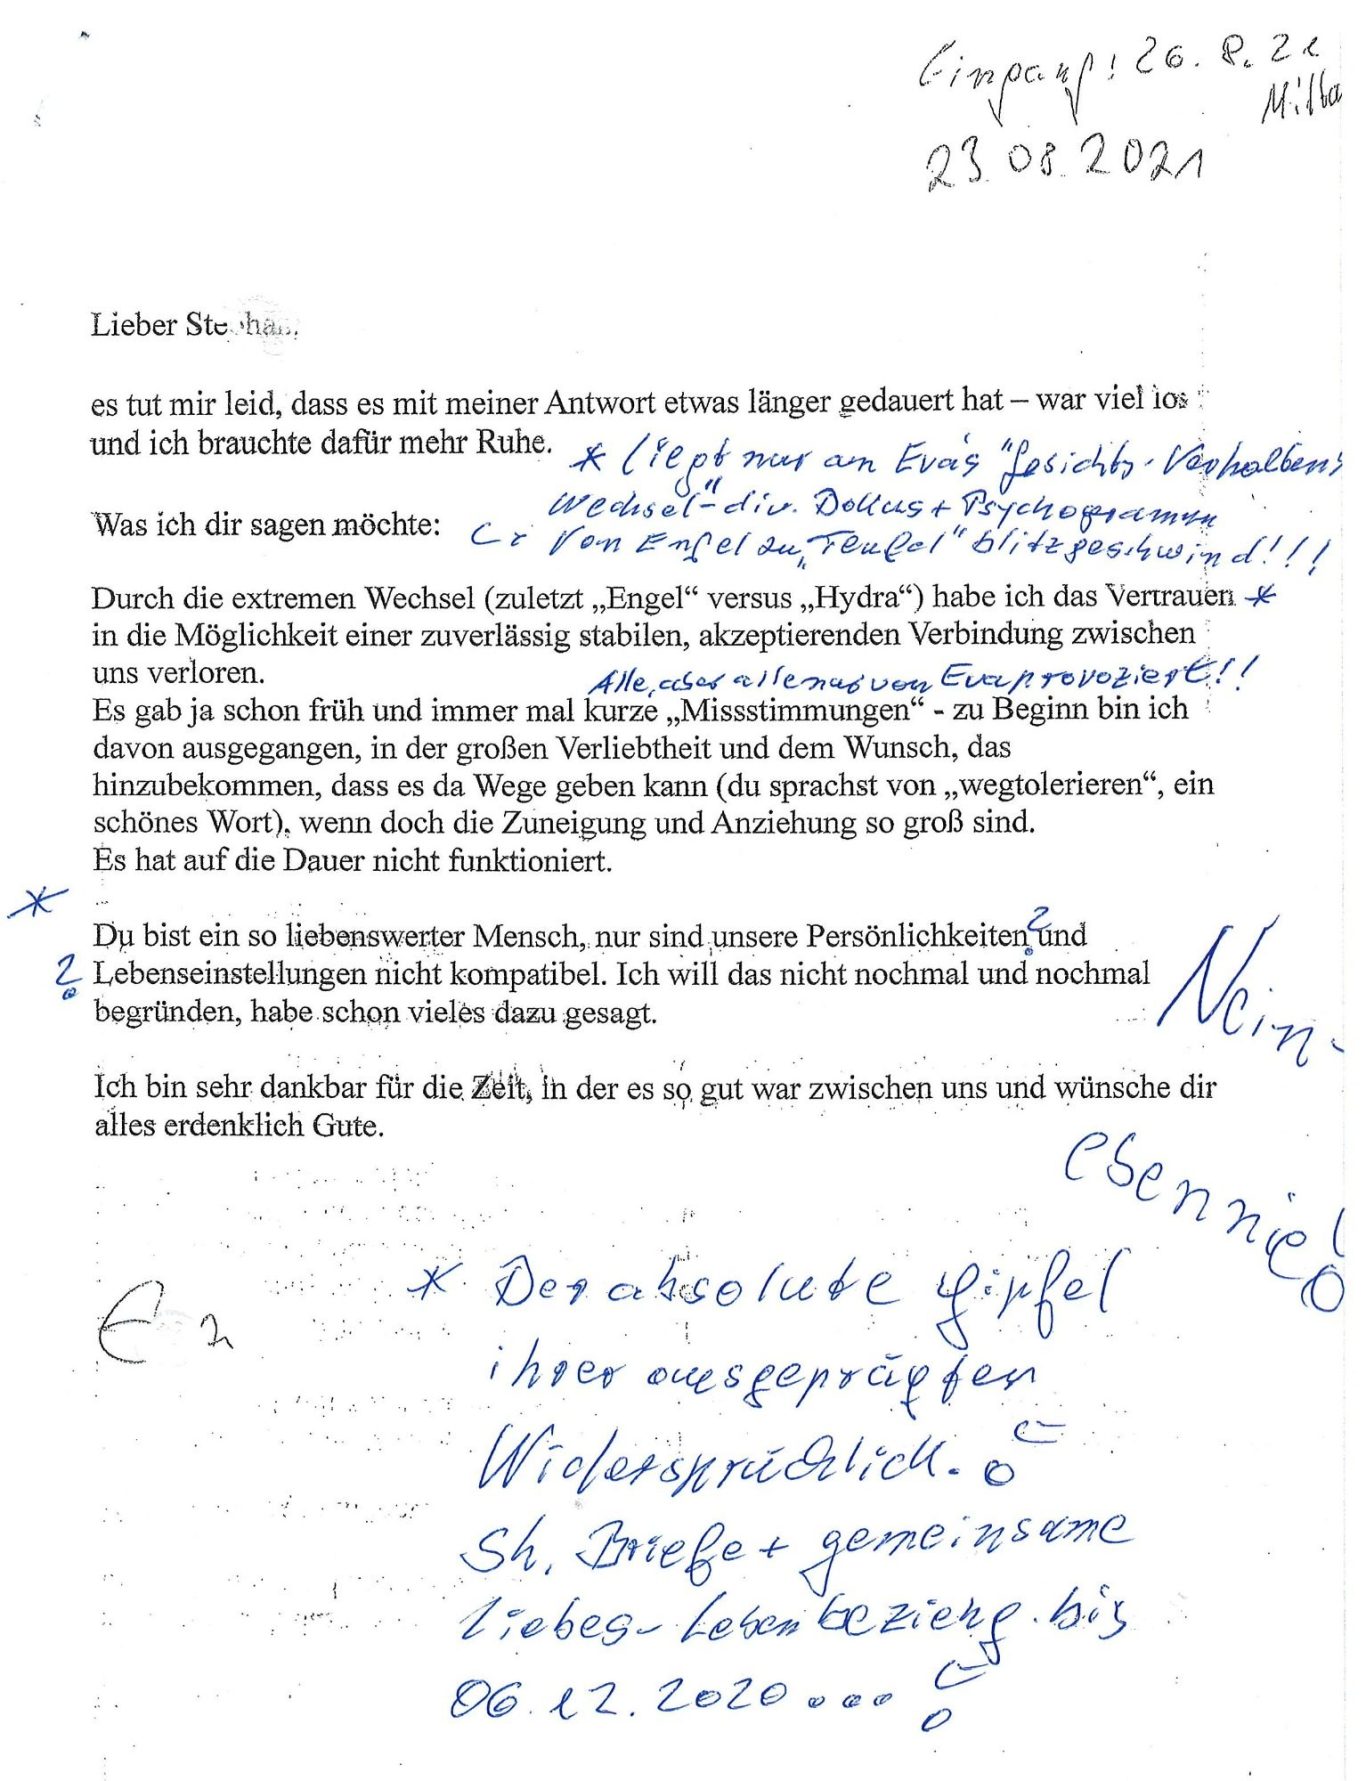 Eingang! 26. 8. 21
23.08.2021
Lieber
es tut mir leid, dass es mit meiner Antwort etwas länger gedauert hat – war viel los
und ich brauchte dafür mehr Ruhe.
* liegt nur am Eva's "Gesichts-Verhaltens
Wechsel"- div. Dokus + Psychogramm
Was ich dir sagen möchte:
Von Engel zu „Teufel" blitzgeschwind!!!
Durch die extremen Wechsel (zuletzt „Engel“ versus „Hydra“) habe ich das Vertrauen *
in die Möglichkeit einer zuverlässig stabilen, akzeptierenden Verbindung zwischen
uns verloren.
Alle, aber alle nur von Eva provoziert!!
Es gab ja schon früh und immer mal kurze „Missstimmungen“ - zu Beginn bin ich
davon ausgegangen, in der großen Verliebtheit und dem Wunsch, das
hinzubekommen, dass es da Wege geben kann (du sprachst von „wegtolerieren“, ein
schönes Wort), wenn doch die Zuneigung und Anziehung so groß sind.
Es hat auf die Dauer nicht funktioniert.
*
Du bist ein so liebenswerter Mensch, nur sind unsere Persönlichkeiten ? und
? Lebenseinstellungen nicht kompatibel. Ich will das nicht nochmal und nochmal
begründen, habe schon vieles dazu gesagt.
Nein-
Ich bin sehr dankbar für die Zeit, in der es so gut war zwischen uns und wünsche dir
alles erdenklich Gute.
eben nie!
* Der absolute Gipfel
ihrer ausgeprägten
Widersprüchlick. ?
Sh. Briefe + gemeinsame
Liebes- Leben beziehg. bis
06.12.2020 ... ?